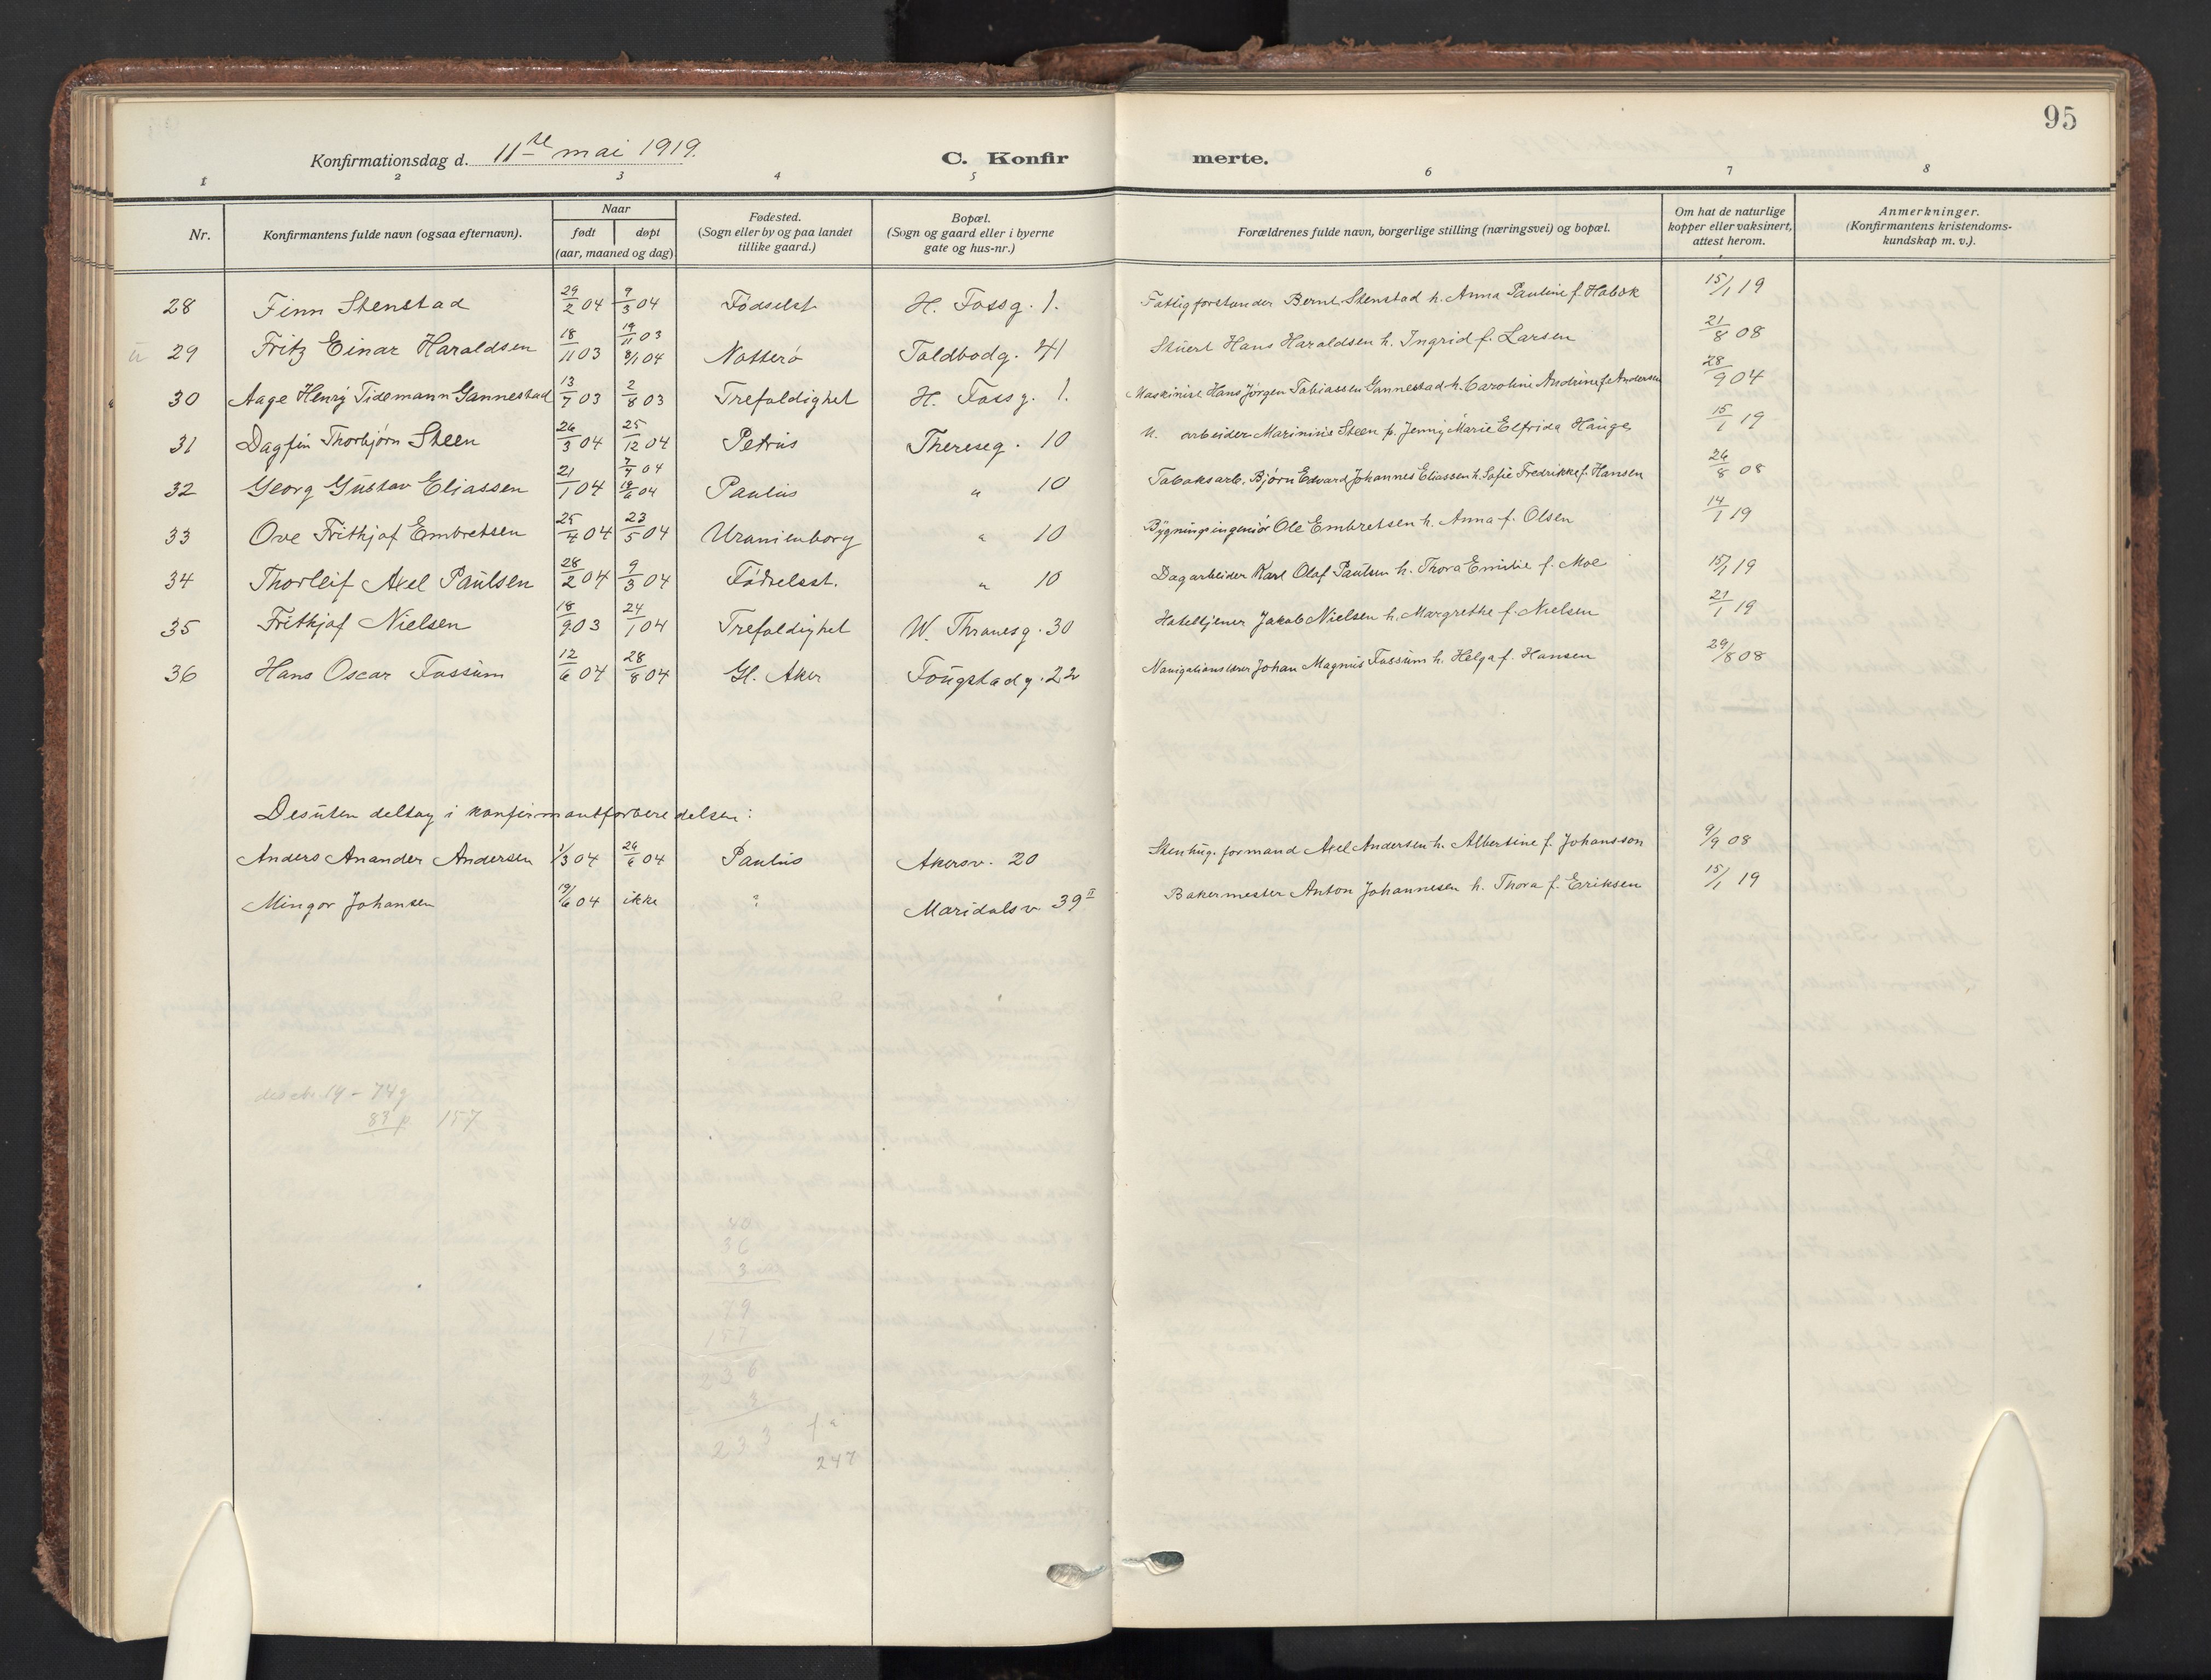 95
Konfirmationsdag d. 11te mai 1919. C. Konfirmerte.
1 2 3 4 5 6 7 8
Nr. Konfirmantens fulde navn (ogsaa efternavn). Naar født døpt (aar, maaned og dag) Fødested. (Sogn eller by og paa landet tillike gaard.) Bopæl. (Sogn og gaard eller i byerne gate og hus-nr.) Forældrenes fulde navn, borgerlige stilling (næringsvei) og bopæl. Om hat de naturlige kopper eller vaksinert, attest herom. Anmerkninger. (Konfirmantens kristendomskundskap m. v.).
28 Finn Stenstad 29/2 04 9/3 04 Fødselst. H. Fossg. 1. Fattigforstander Bernt Stenstad h. Anna Pauline f. Habæk 15/1 19
29 Fritz Einar Haraldsen 18/11 03 19/11 03 8/1 04 Nøtterø Toldbodg. 41 Stuert Hans Haraldsen h. Ingrid f. Larsen 21/8 08
30 Aage Henry Tidemann Gannestad 13/7 03 2/8 03 Trefoldighet H. Fossg. 1. Maskinist Hans Jørgen Tobiassen Gannestad h. Caroline Andrine f. Andersen 28/9 04
31 Dagfin Thorbjørn Steen 26/3 04 25/12 04 Petrus Thereseg. 10 u. arbeider Marinius Steen p. Jenny Marie Elfrida Hauge 15/1 19
32 Georg Gustav Eliassen 21/1 04 7/4 04 04 Paulus " 10 Tobaksarb. Bjørn Edvard Johannes Eliassen h. Sofie Fredrikke f. Hansen 26/8 08
33 Ove Frithjof Embretsen 25/4 04 23/5 04 Uranienborg " 10 Bygningsingeniør Ole Embretsen h. Anna f. Olsen 14/1 19
34 Thorleif Axel Paulsen 28/2 04 9/3 04 Fødselsst. " 10 Dagarbeider Karl Olaf Paulsen h. Thora Emilie f. Moe 15/1 19
35 Frithjof Nielsen 18/9 03 24/1 04 Trefoldighet W. Thranesg. 30 Hoteltjener Jakob Nielsen h. Margrethe f. Nielsen 21/1 19
36 Hans Oscar Fossum 12/6 04 28/8 04 Gl. Aker Fougstadg. 22 Navigationslærer Johan Magnus Fossum h. Helga f. Hansen 29/8 08
Desuten deltog i konfirmantforberedelsen:
Anders Anander Andersen 1/3 04 26/6 04 Paulus Akersv. 20 Stenhug. formand Axel Andersen h. Albertine f. Johansson 9/9 08
Mingor Johansen 19/6 04 ikke ? Maridalsv 39 II Bakermester Anton Johannesen h. Thora f. Eriksen 15/1 19
19 - 74 g
83 p. 157
40
36
3
79
157
236
3
233
247